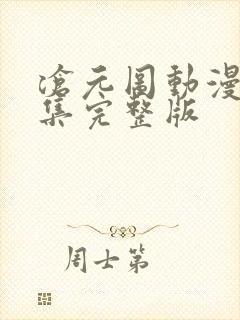 滄元圖動漫
集完整版
周士第